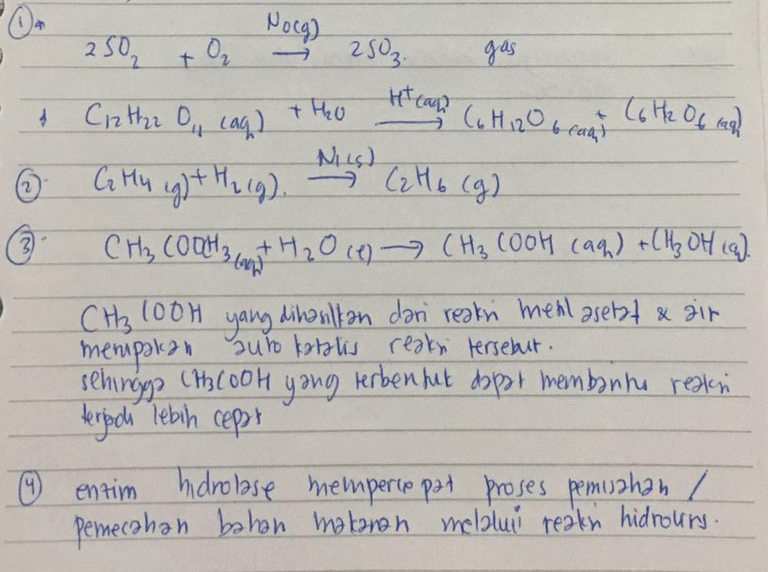 ① NO(g)
2SO₂ + O₂ → 2SO₃ gas
C12H22O11 (aq) + H₂O H⁺(aq) → C6H12O6 (aq) + C6H12O6 (aq)
② C2H4 (g) + H2 (g). Ni(s) → C2H6 (g)
③ CH3COOCH3 (aq) + H2O (l) → CH3COOH (aq) + CH3OH (aq).
CH3COOH yang dihasilkan dari reaksi metil asetat & air
merupakan auto katalis reaksi tersebut.
sehingga CH3COOH yang terbentuk dapat membantu reaksi
terjadi lebih cepat
④ enzim hidrolase mempercepat proses pemisahan /
pemecahan bahan makanan melalui reaksi hidrolisis.